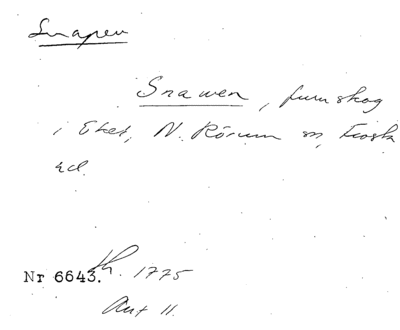 Snapen
Snawen, furuskog
i Eket, N. Rörum sn, Frosta
hd.
Nr 6643. h. 1775
Akt 11.